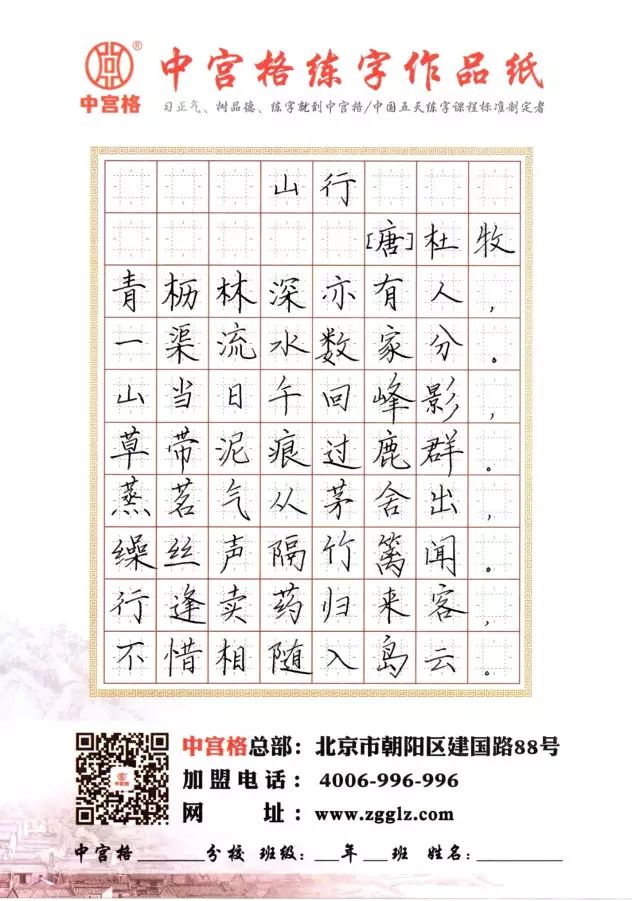 ®
中宫格
中宫格练字作品纸
习正气、树品德、练字就到中宫格/中国五天练字课程标准制定者
山行
[唐]杜牧
青枥林深亦有人，
一渠流水数家分。
山当日午回峰影，
草带泥痕过鹿群。
蒸茗气从茅舍出，
缲丝声隔竹篱闻。
行逢卖药归来客，
不惜相随入岛云。
中宫格
中宫格总部：北京市朝阳区建国路88号
加盟电话：4006-996-996
网址：www.zgglz.com
中宫格______分校 班级：___年___班 姓名：__________